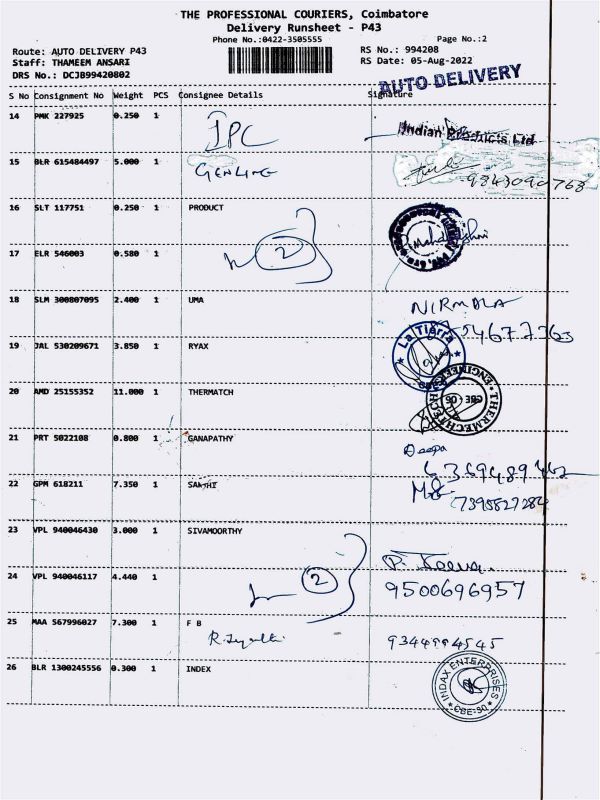 THE PROFESSIONAL COURIERS, Coimbatore
Delivery Runsheet - P43
Phone No.:0422-3505555 Page No.:2
Route: AUTO DELIVERY P43 RS No.: 994208
Staff: THAMEEM ANSARI RS Date: 05-Aug-2022
DRS No.: DCJB99420802
AUTO DELIVERY
S No Consignment No Weight PCS Consignee Details Signature
14 PMK 227925 0.250 1 IPC Indian Products Ltd
15 BLR 615484497 5.000 1 9843090768
16 SLT 117751 0.250 1 PRODUCT
17 ELR 546003 0.580 1 2
18 SLM 300807095 2.400 1 UMA NIRMALA
19 JAL 530209671 3.850 1 RYAX La Tierra
20 AMD 25155352 11.000 1 THERMATCH CBE - 06
21 PRT 5022108 0.800 1 GANAPATHY Deepa
22 GPM 618211 7.350 1
7395827284
23 VPL 940046430 3.000 1 SIVAMOORTHY
24 VPL 940046117 4.440 1 2 9500696957
25 MAA 567996027 7.300 1 F B
26 BLR 1300245556 0.300 1 INDEX INDAX ENTERPRISES